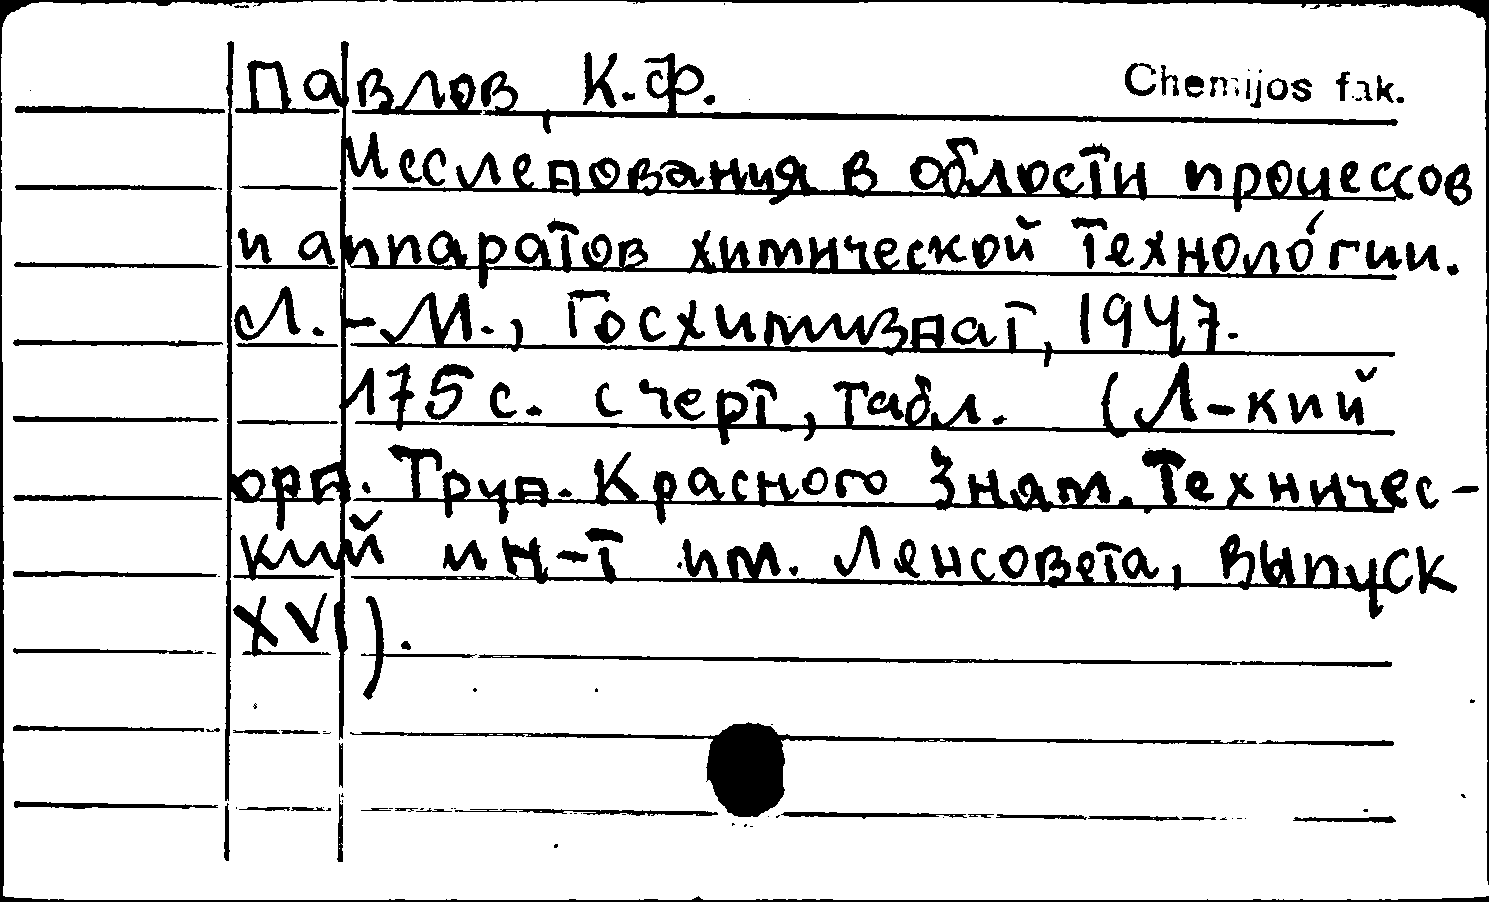 Павлов, К.Ф.
Chemijos fak.
Исследования в области процессов
и аппаратов химической технологии.
Л.-М., Госхимиздат, 1947.
175 с. с черт, табл. (Л-кий
орд. Труд. Красного Знам. Техничес-
кий ин-т им. Ленсовета, выпуск
XVI).